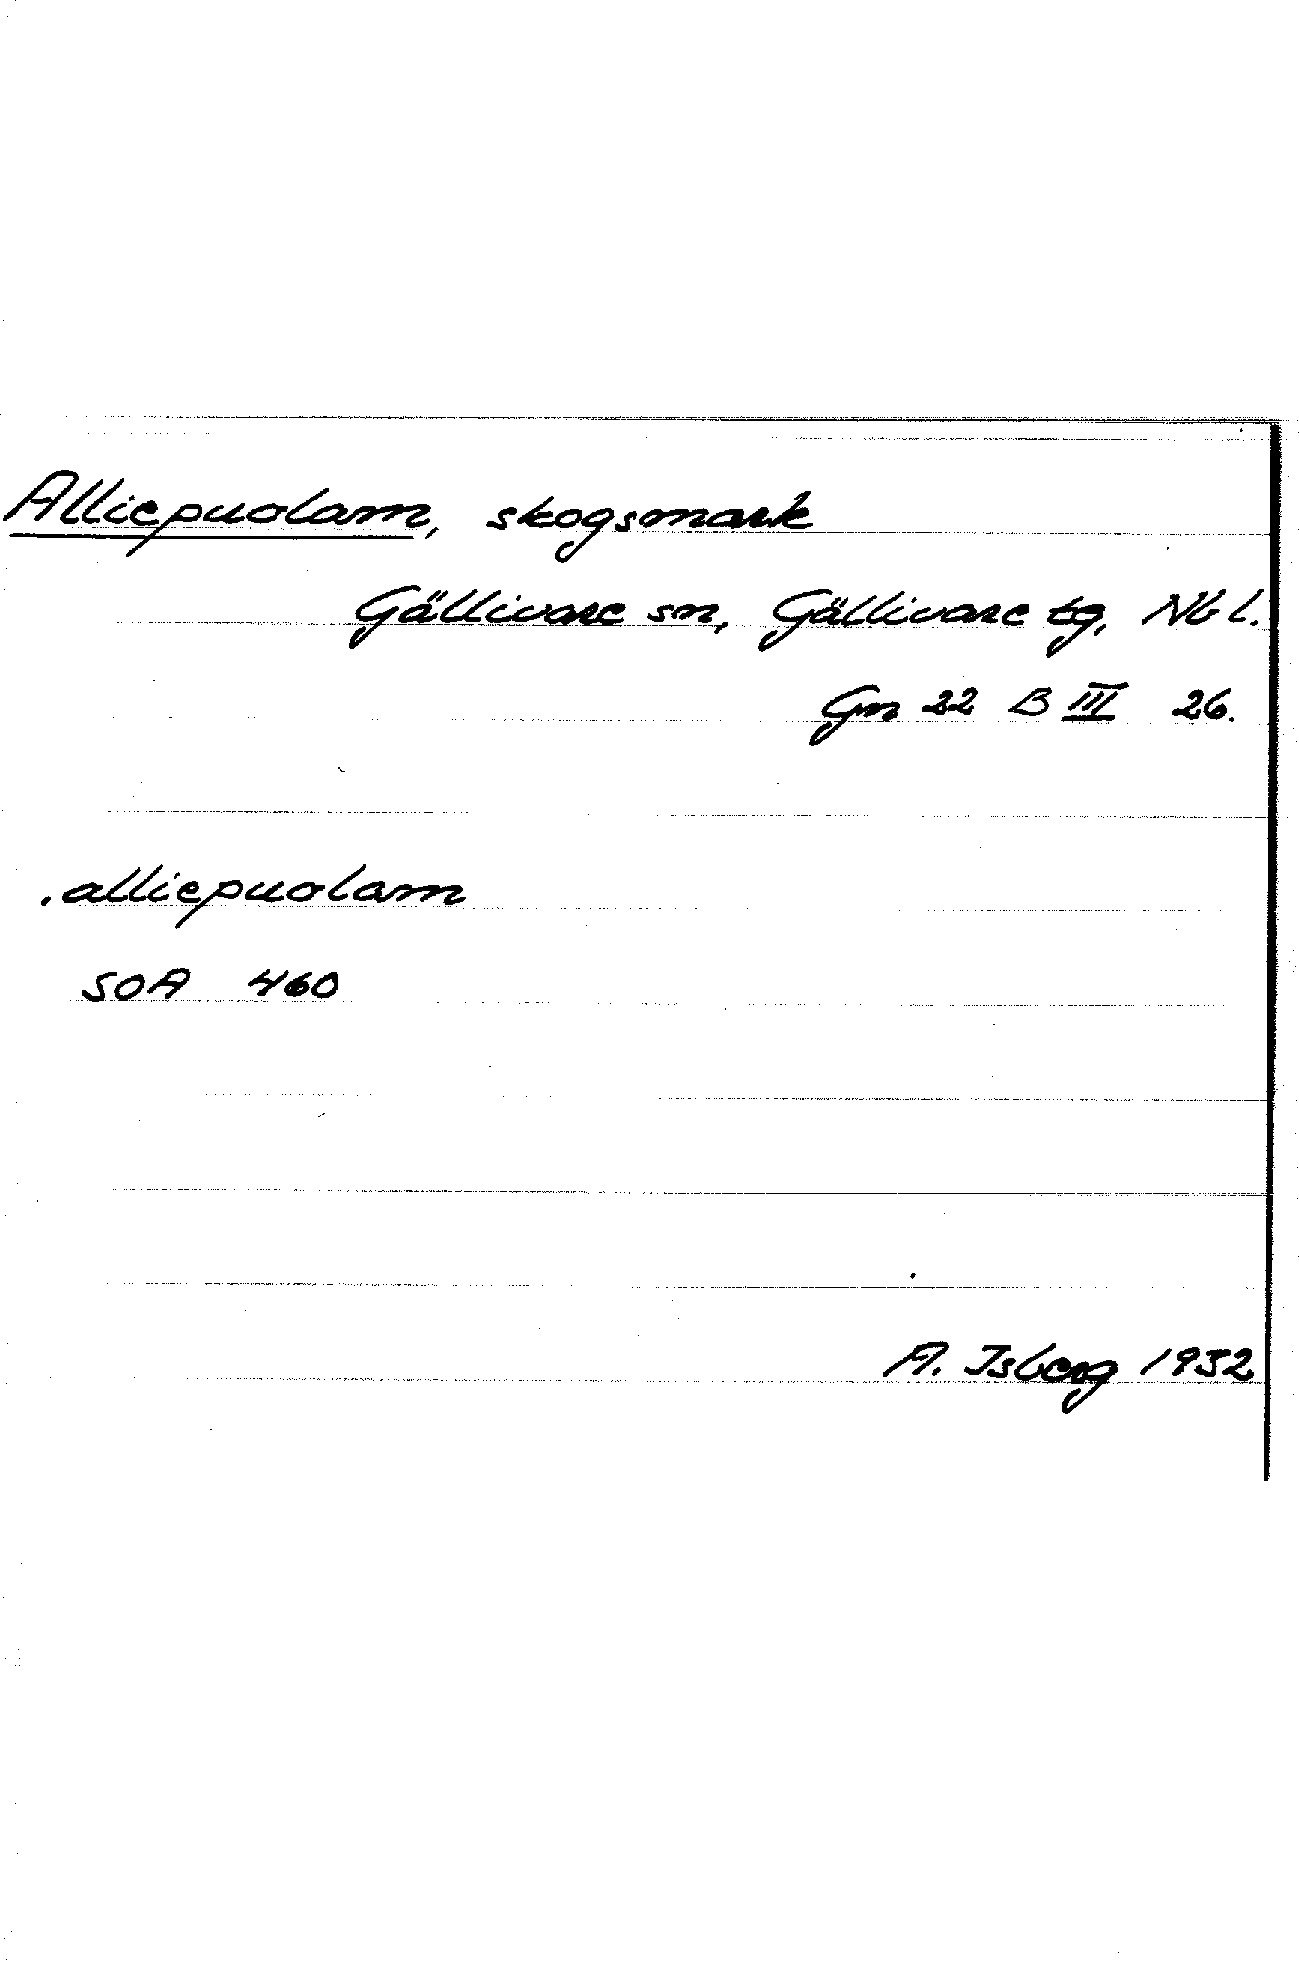 Alliepuolam, skogsmark
Gällivare sn, Gällivare tg, Nb l.
Gn 22 B III 26.
. alliepuolam
SOA 460
A. Isberg 1952